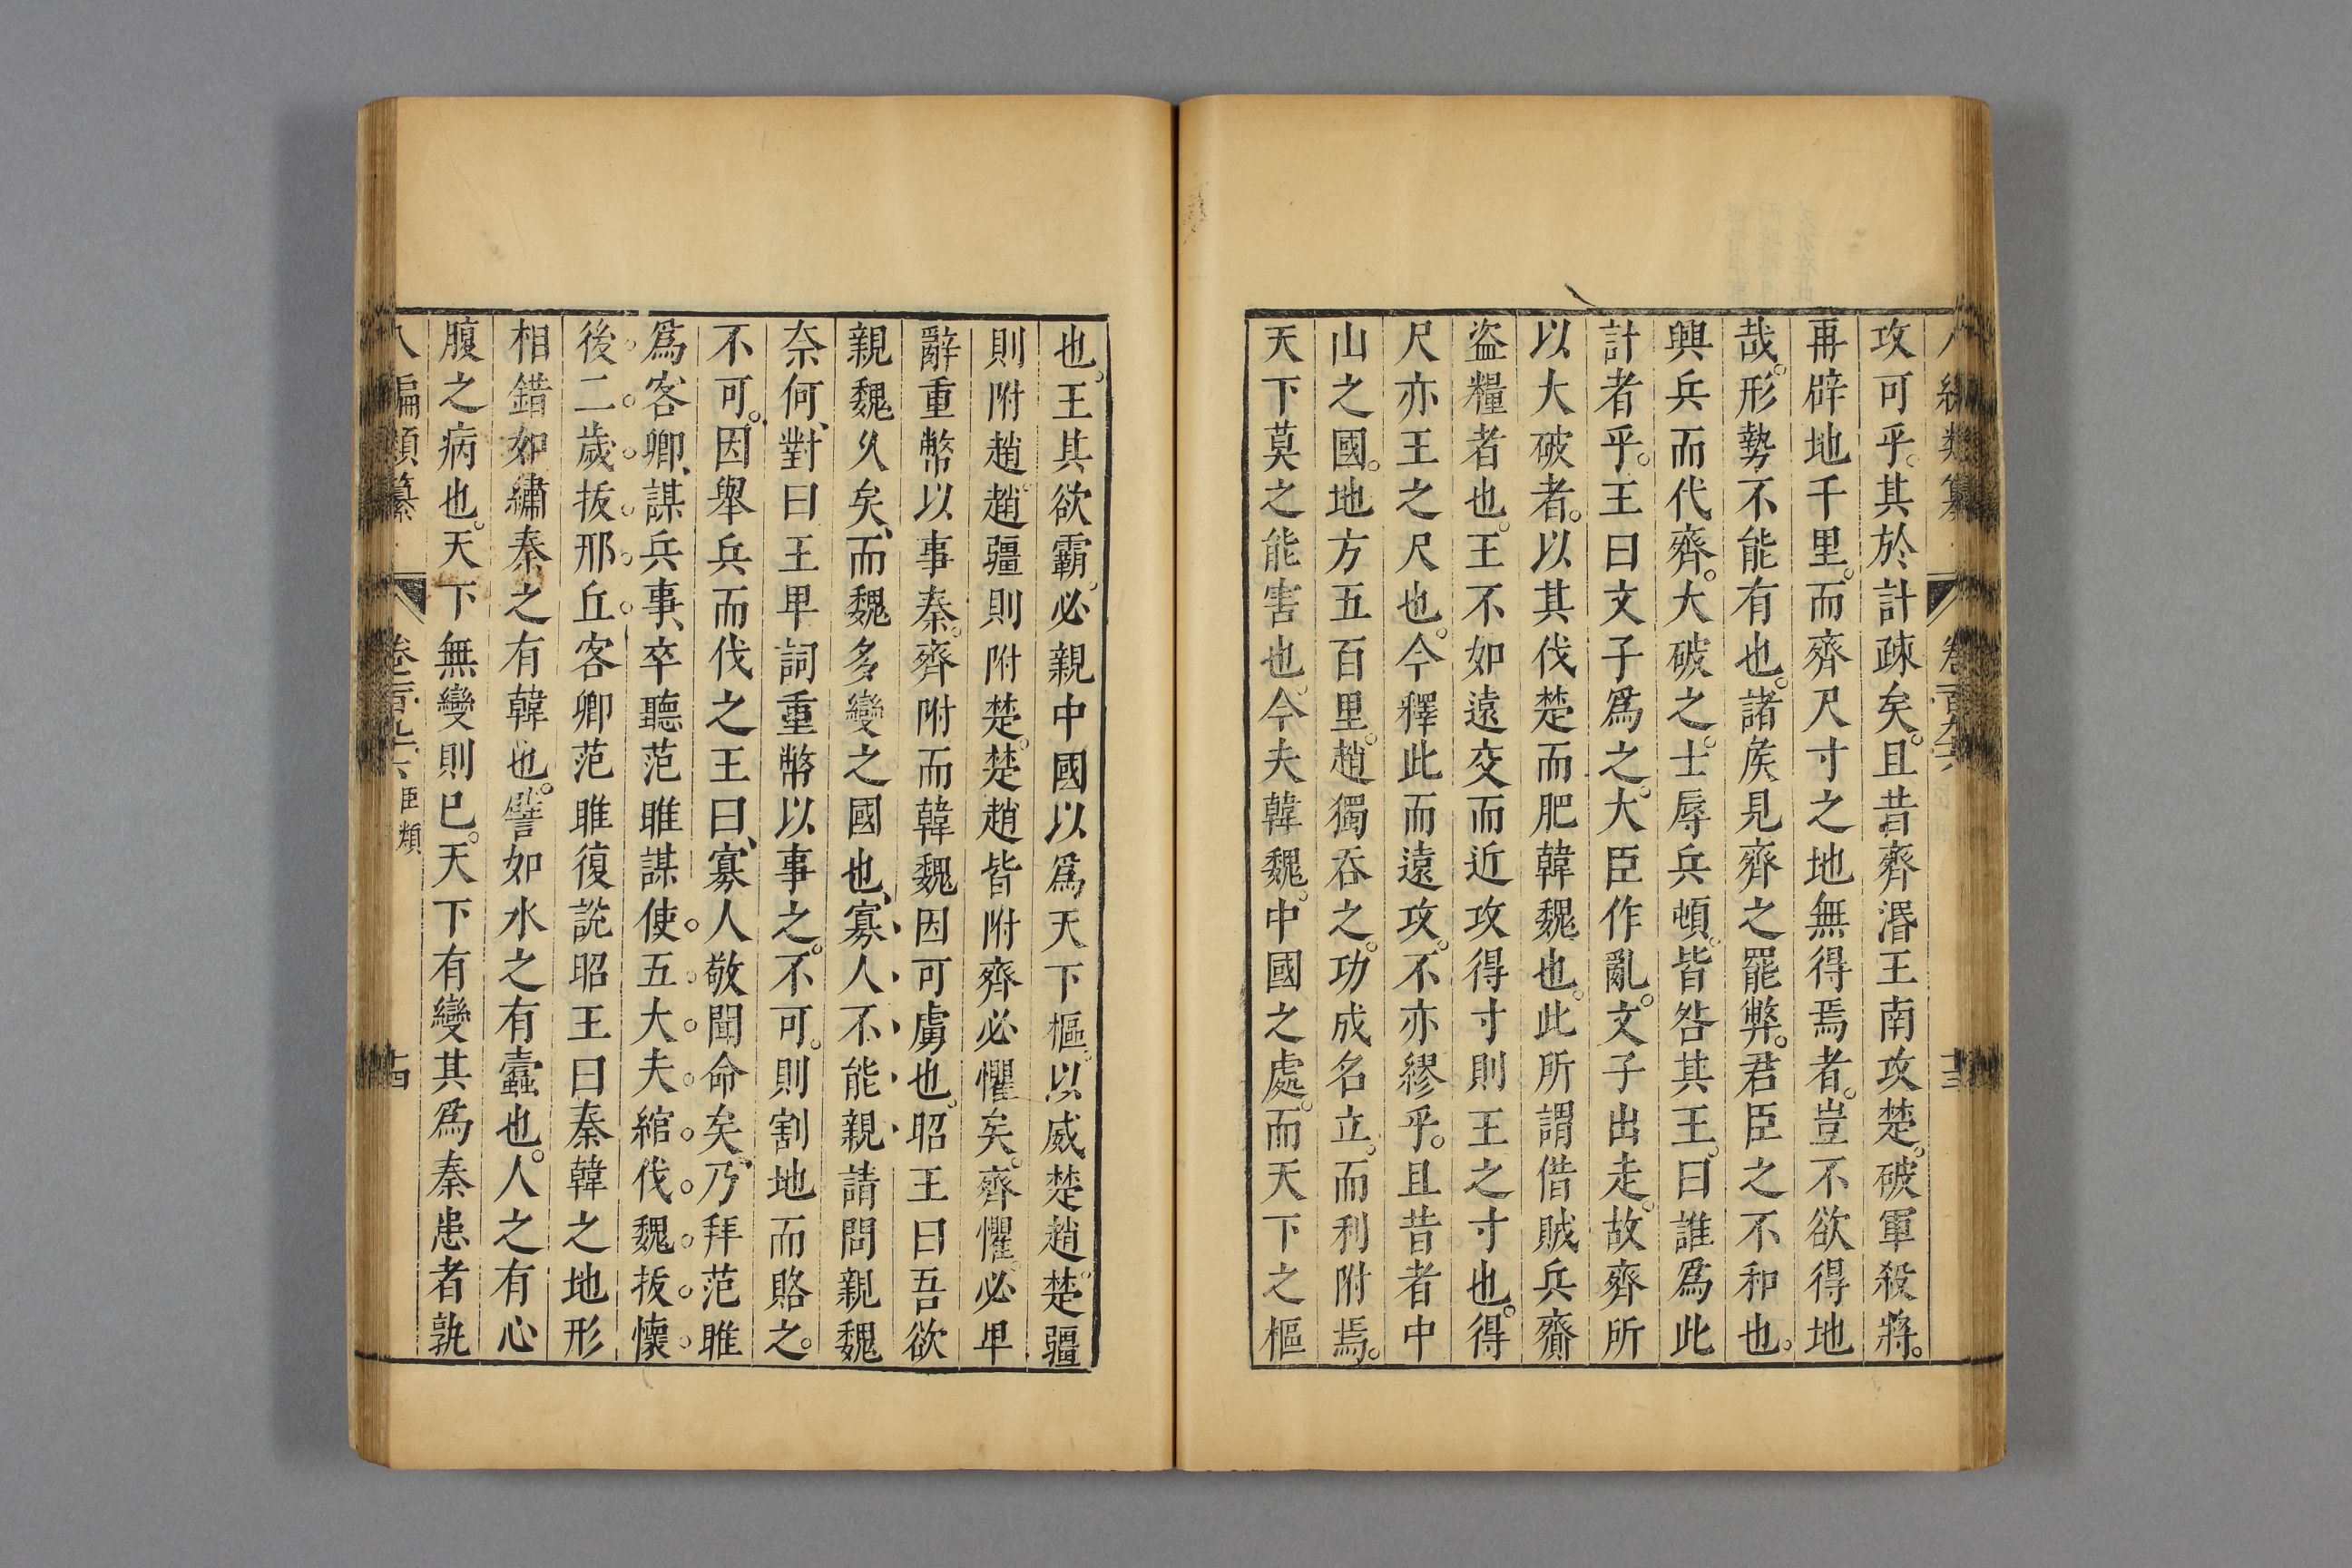 攻可乎。其於計疎矣。且昔齊湣王南攻楚。破軍殺將。
再辟地千里。而齊尺寸之地無得焉者。豈不欲得地
哉。形勢不能有也。諸矦見齊之罷弊。君臣之不和也。
興兵而伐齊。大破之。士辱兵頓。皆咎其王。曰誰爲此
計者乎。王曰文子爲之。大臣作亂。文子出走。故齊所
以大破者。以其伐楚而肥韓魏也。此所謂借賊兵齎
盗糧者也。王不如遠交而近攻得寸則王之寸也。得
尺亦王之尺也。今釋此而遠攻。不亦繆乎。且昔者中
山之國。地方五百里。趙獨吞之。功成名立。而利附焉。
天下莫之能害也。今夫韓魏。中國之處。而天下之樞
也。王其欲霸。必親中國以爲天下樞。以威楚趙。楚疆
則附趙。趙疆則附楚。楚趙皆附齊必懼矣。齊懼。必卑
辭重幣以事秦。齊附而韓魏因可虜也。昭王曰吾欲
親魏久矣、而魏多變之國也、寡人不能親請問親魏
奈何、對曰王卑詞重幣以事之。不可。則割地而賂之。
不可。因舉兵而伐之王曰、寡人敬聞命矣、乃拜范雎
爲客卿、謀兵事、卒聽范雎謀使五大夫綰伐魏拔懷
後二歲拔邢丘客卿范雎復說昭王曰秦韓之地形
相錯如繡秦之有韓也。譬如水之有蠹也。人之有心
腹之病也。天下無變則已。天下有變其爲秦患者孰
八編類纂 卷二百九十六 臣類 十四